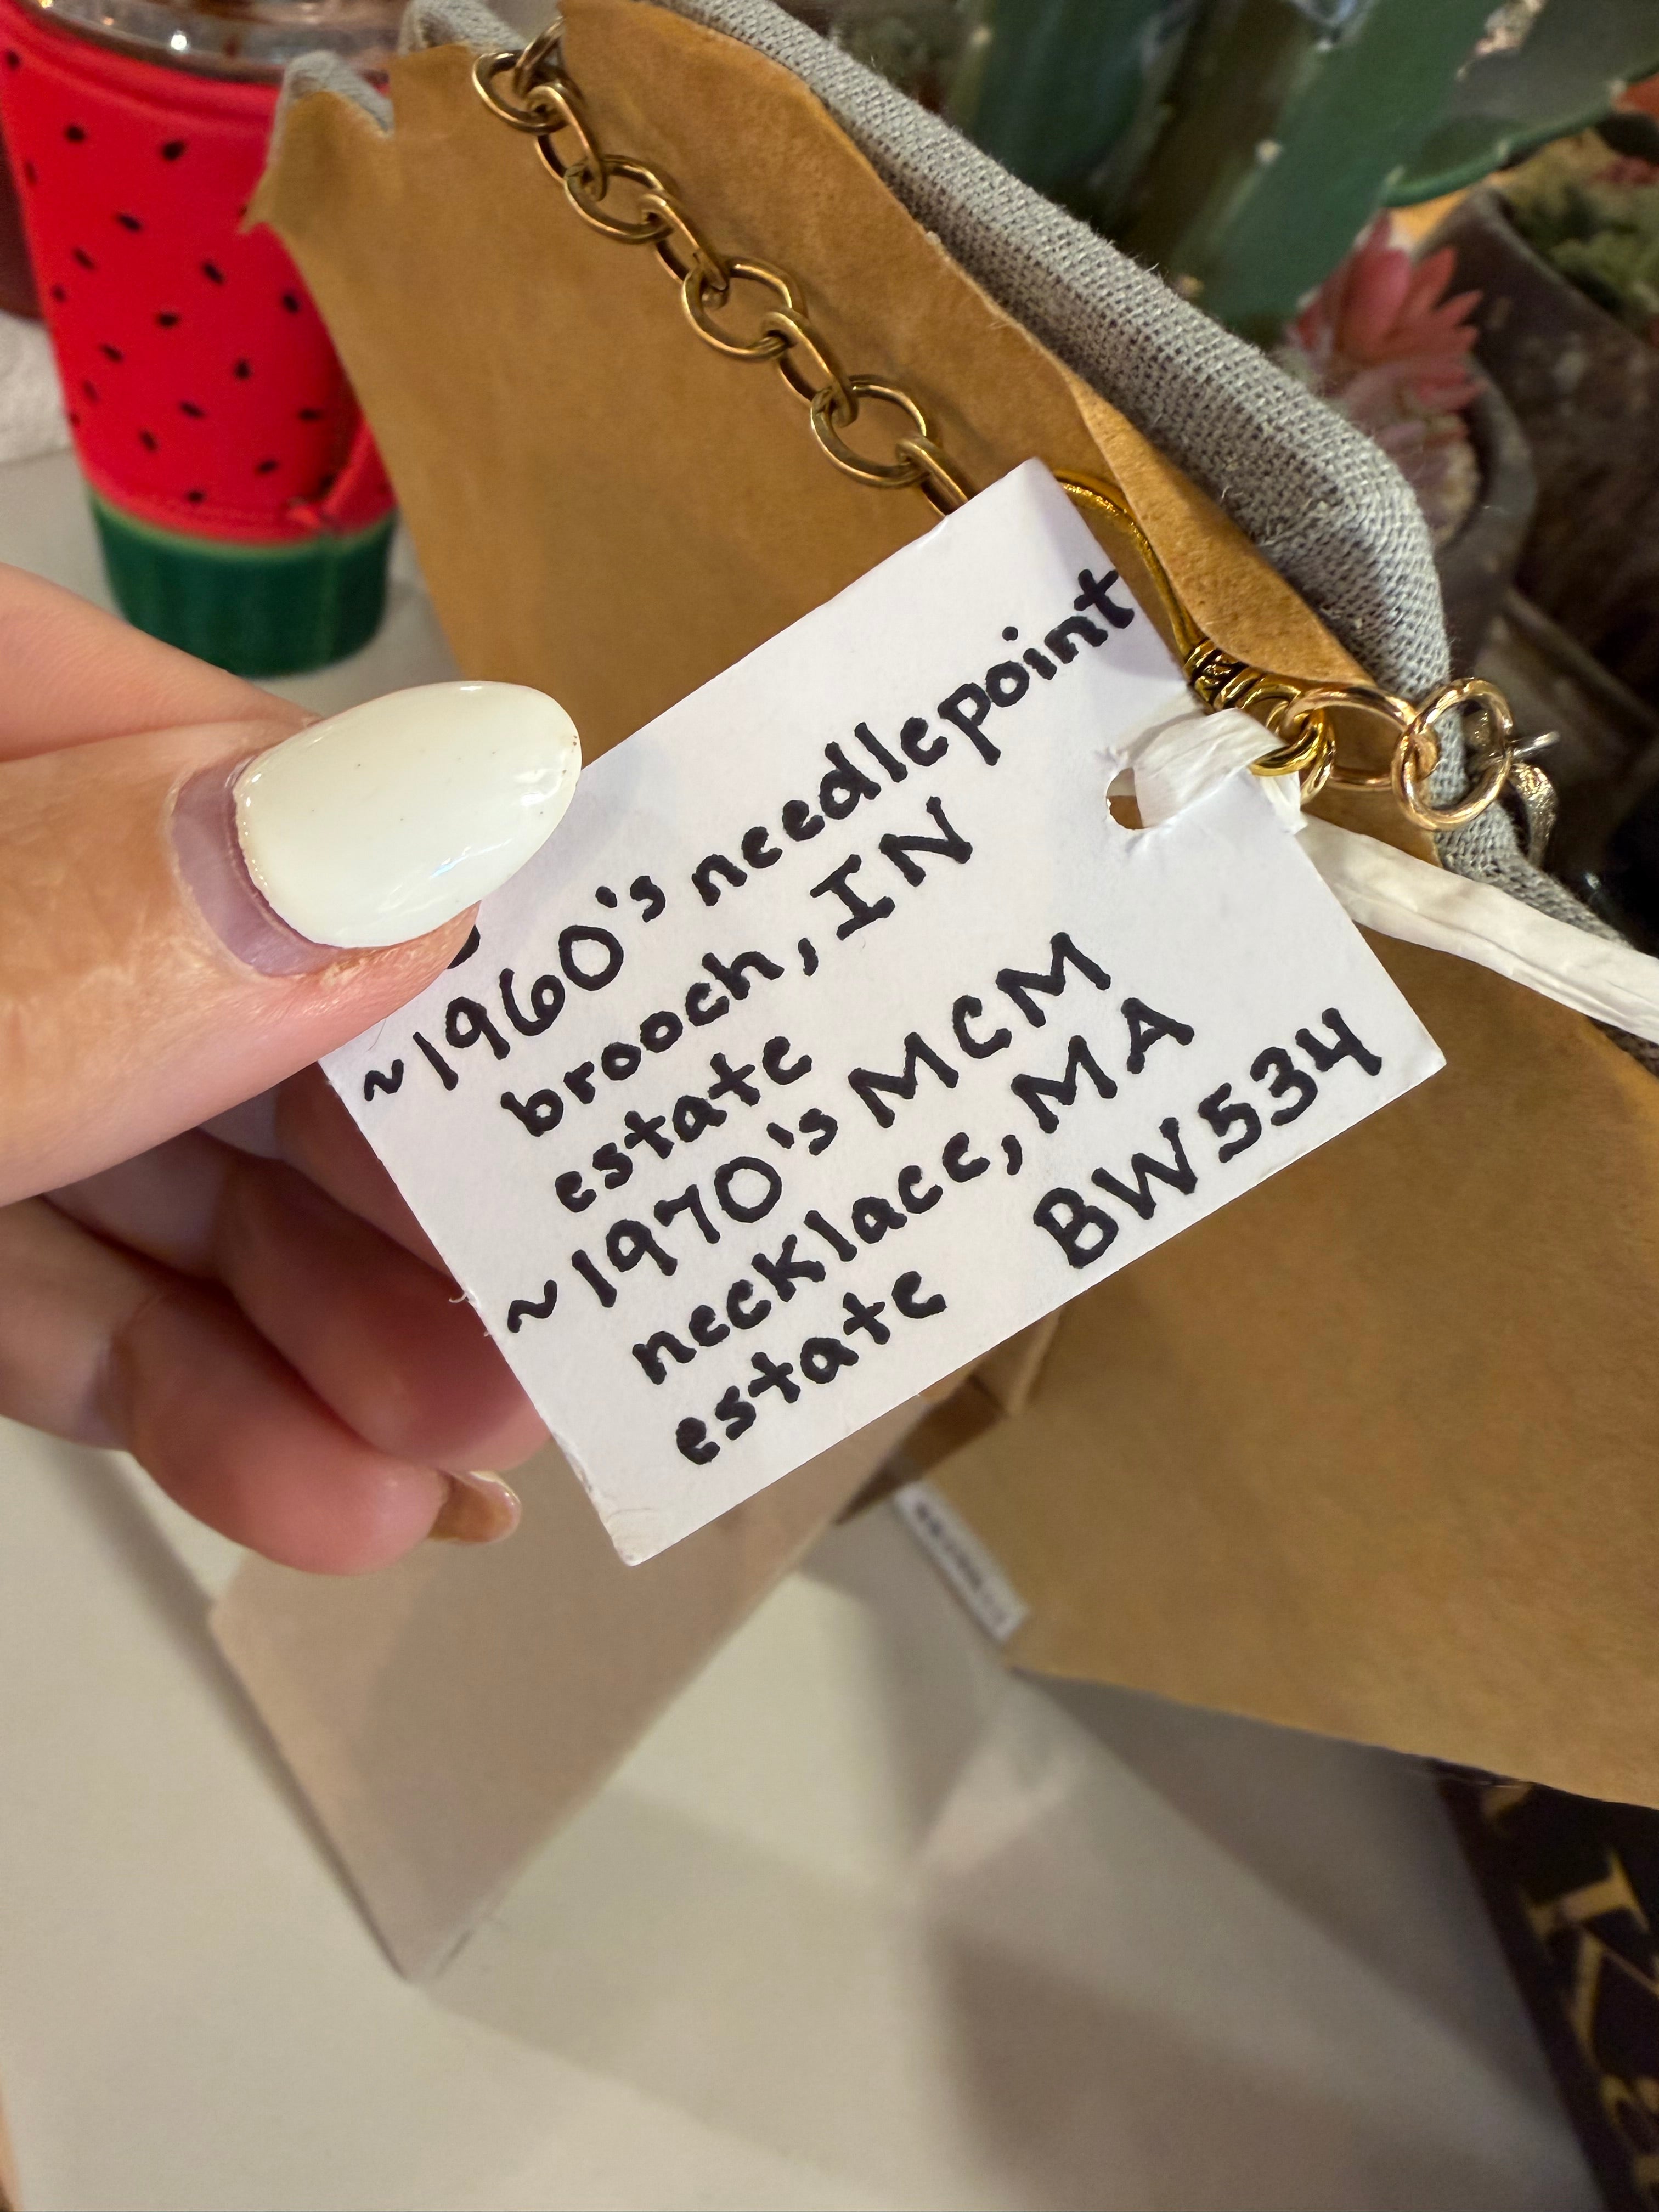 ~1960's needlepoint
brooch, IN
estate
~1970's MCM
necklace, MA
estate BW534